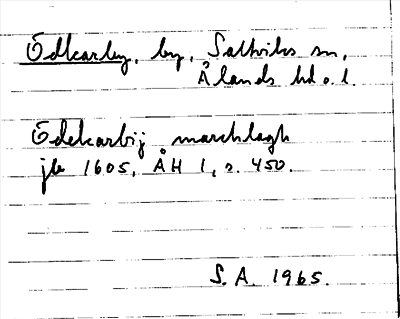 Ödkarby, by, Saltviks sn,
Ålands hd o. l.
Ödekarbij marchlagh
jb 1605, ÅH 1, s. 450.
S.A. 1965.